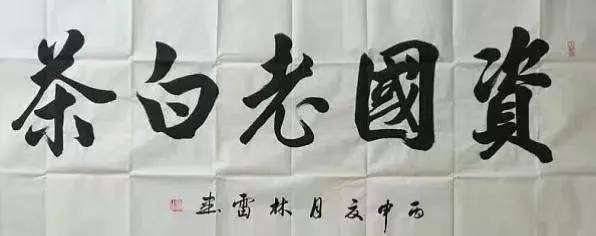 資國老白茶
丙申夏月林雷書